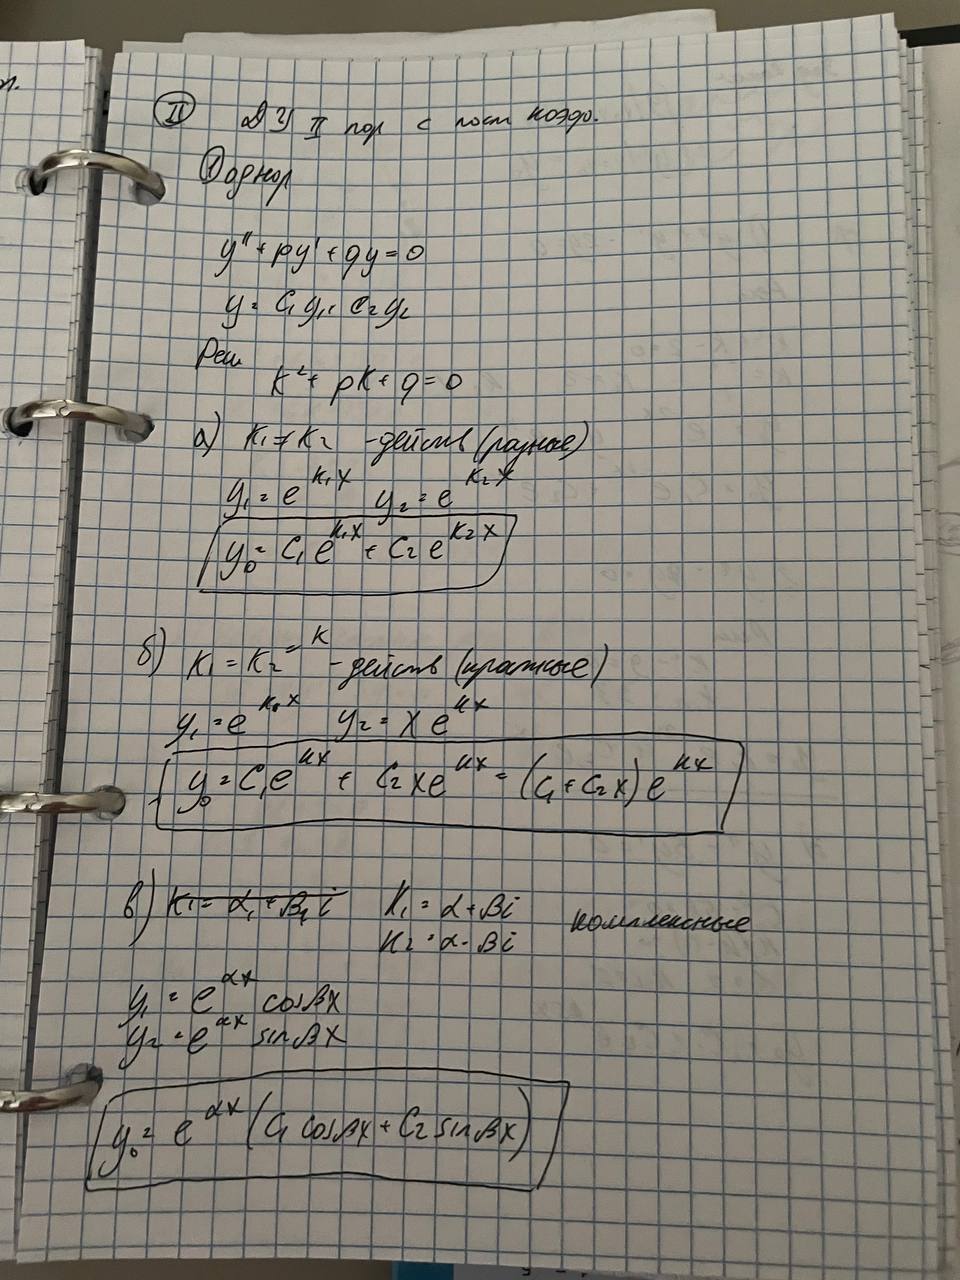 II ДУ II пор с пост коэфф.
① однор
y'' + py' + qy = 0
y = C₁y₁ + C₂y₂
Реш
k² + pk + q = 0
а) k₁ ≠ k₂ - действ (разные)
y₁ = e^{k₁x} y₂ = e^{k₂x}
y₀ = C₁e^{k₁x} + C₂e^{k₂x}
б) k₁ = k₂ = k - действ (кратные)
y₁ = e^{kx} y₂ = xe^{kx}
y₀ = C₁e^{kx} + C₂xe^{kx} = (C₁ + C₂x)e^{kx}
в) k₁ = α₁ + β₁i k₁ = α + βi комплексные
k₂ = α - βi
y₁ = e^{αx} cosβx
y₂ = e^{αx} sinβx
y₀ = e^{αx} (C₁ cosβx + C₂ sinβx)